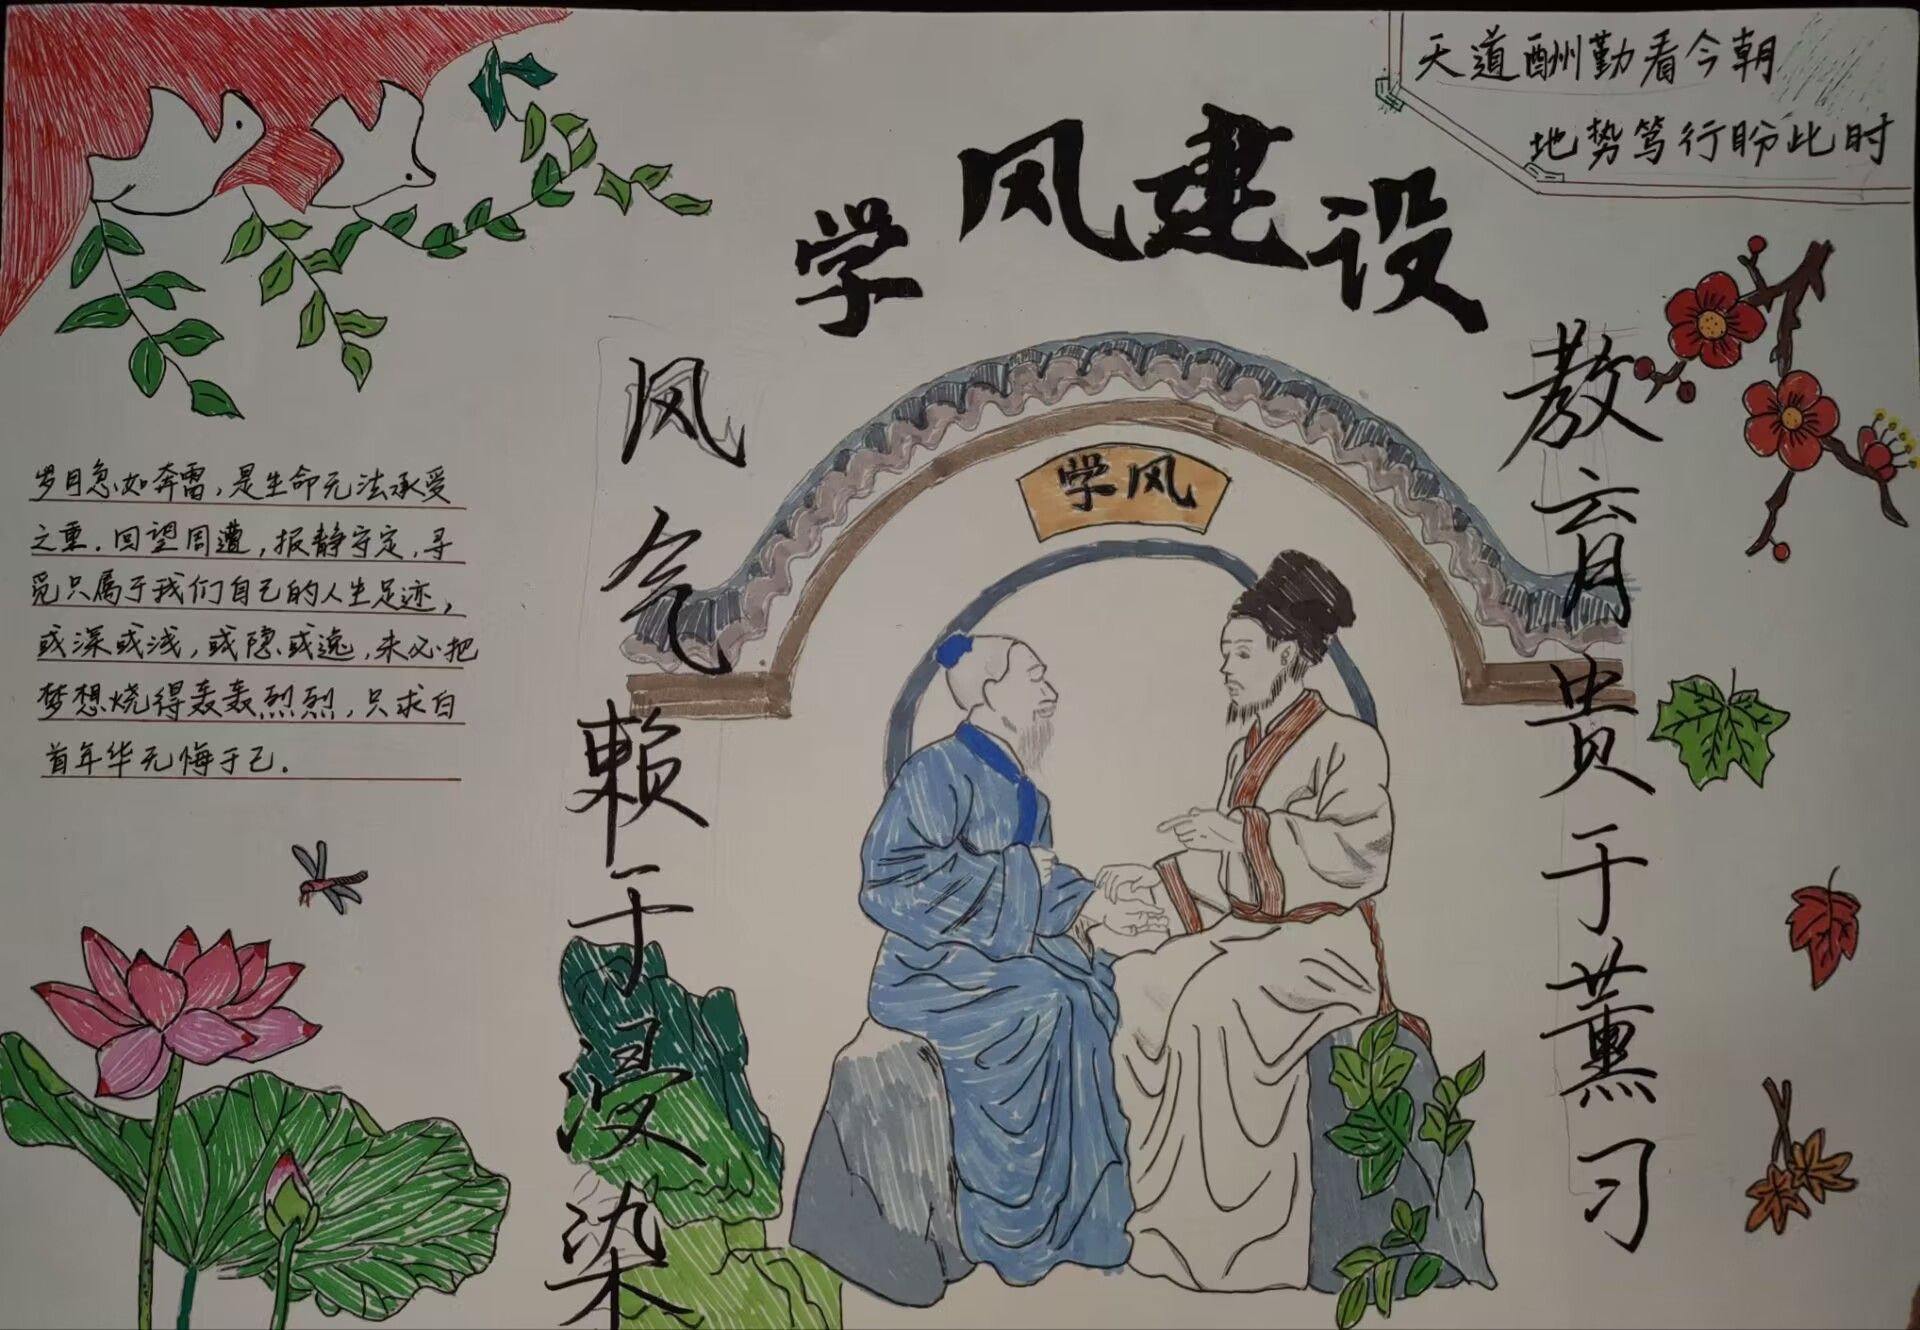 天道酬勤看今朝
地势笃行盼此时
学风建设
学风
教育贵于薰习
风气赖于浸染
岁月急如奔雷，是生命无法承受
之重．回望周遭，报静守定，寻
觅只属于我们自己的人生足迹，
或深或浅，或隐或逸，未必把
梦想烧得轰轰烈烈，只求白
首年华无悔于己．